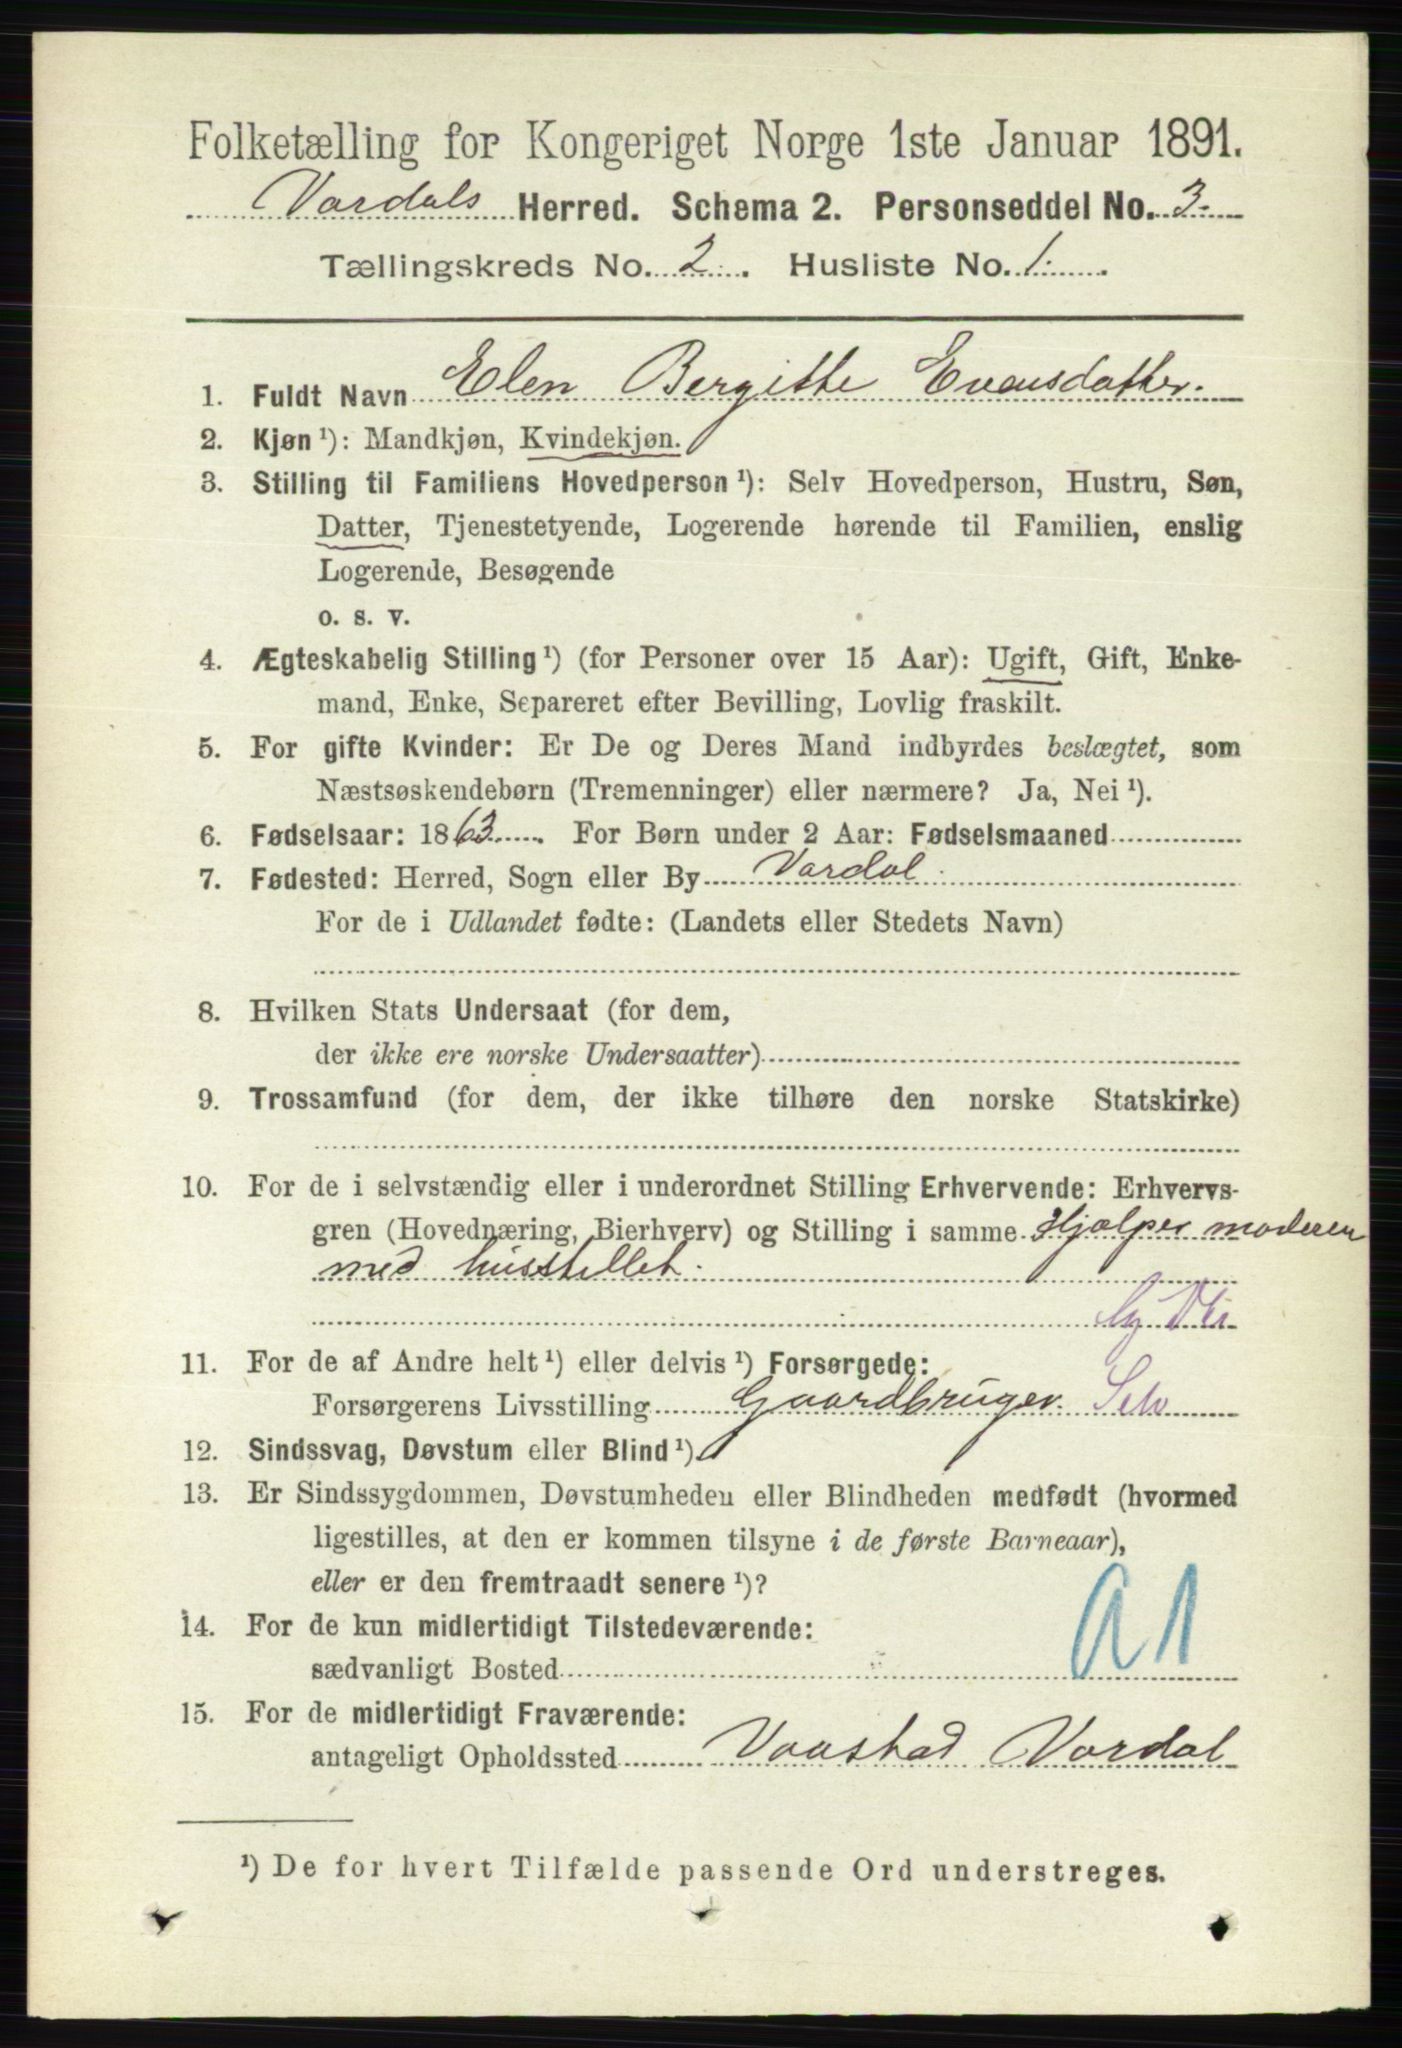 Folketælling for Kongeriget Norge 1ste Januar 1891.
Vardals Herred. Schema 2. Personseddel No. 3.
Tællingskreds No. 2. Husliste No. 1.
1. Fuldt Navn Elen Bergitte Evensdatter.
2. Kjøn ¹): Mandkjøn, Kvindekjøn.
3. Stilling til Familiens Hovedperson ¹): Selv Hovedperson, Hustru, Søn,
Datter, Tjenestetyende, Logerende hørende til Familien, enslig
Logerende, Besøgende
o. s. v.
4. Ægteskabelig Stilling ¹) (for Personer over 15 Aar): Ugift, Gift, Enke-
mand, Enke, Separeret efter Bevilling, Lovlig fraskilt.
5. For gifte Kvinder: Er De og Deres Mand indbyrdes beslægtet, som
Næstsøskendebørn (Tremenninger) eller nærmere? Ja, Nei ¹).
6. Fødselsaar: 1863. For Børn under 2 Aar: Fødselsmaaned
7. Fødested: Herred, Sogn eller By Vardal.
For de i Udlandet fødte: (Landets eller Stedets Navn)
8. Hvilken Stats Undersaat (for dem,
der ikke ere norske Undersaatter)
9. Trossamfund (for dem, der ikke tilhøre den norske Statskirke)
10. For de i selvstændig eller i underordnet Stilling Erhvervende: Erhvervs-
gren (Hovednæring, Bierhverv) og Stilling i samme Hjælper moderen
med husstellet.
11. For de af Andre helt ¹) eller delvis ¹) Forsørgede:
Forsørgerens Livsstilling Gaardbruger. Selv
12. Sindssvag, Døvstum eller Blind ¹).
13. Er Sindssygdommen, Døvstumheden eller Blindheden medfødt (hvormed
ligestilles, at den er kommen tilsyne i de første Barneaar),
eller er den fremtraadt senere ¹)?
14. For de kun midlertidigt Tilstedeværende:
sædvanligt Bosted
15. For de midlertidigt Fraværende:
antageligt Opholdssted Vaastad Vardal
¹) De for hvert Tilfælde passende Ord understreges.